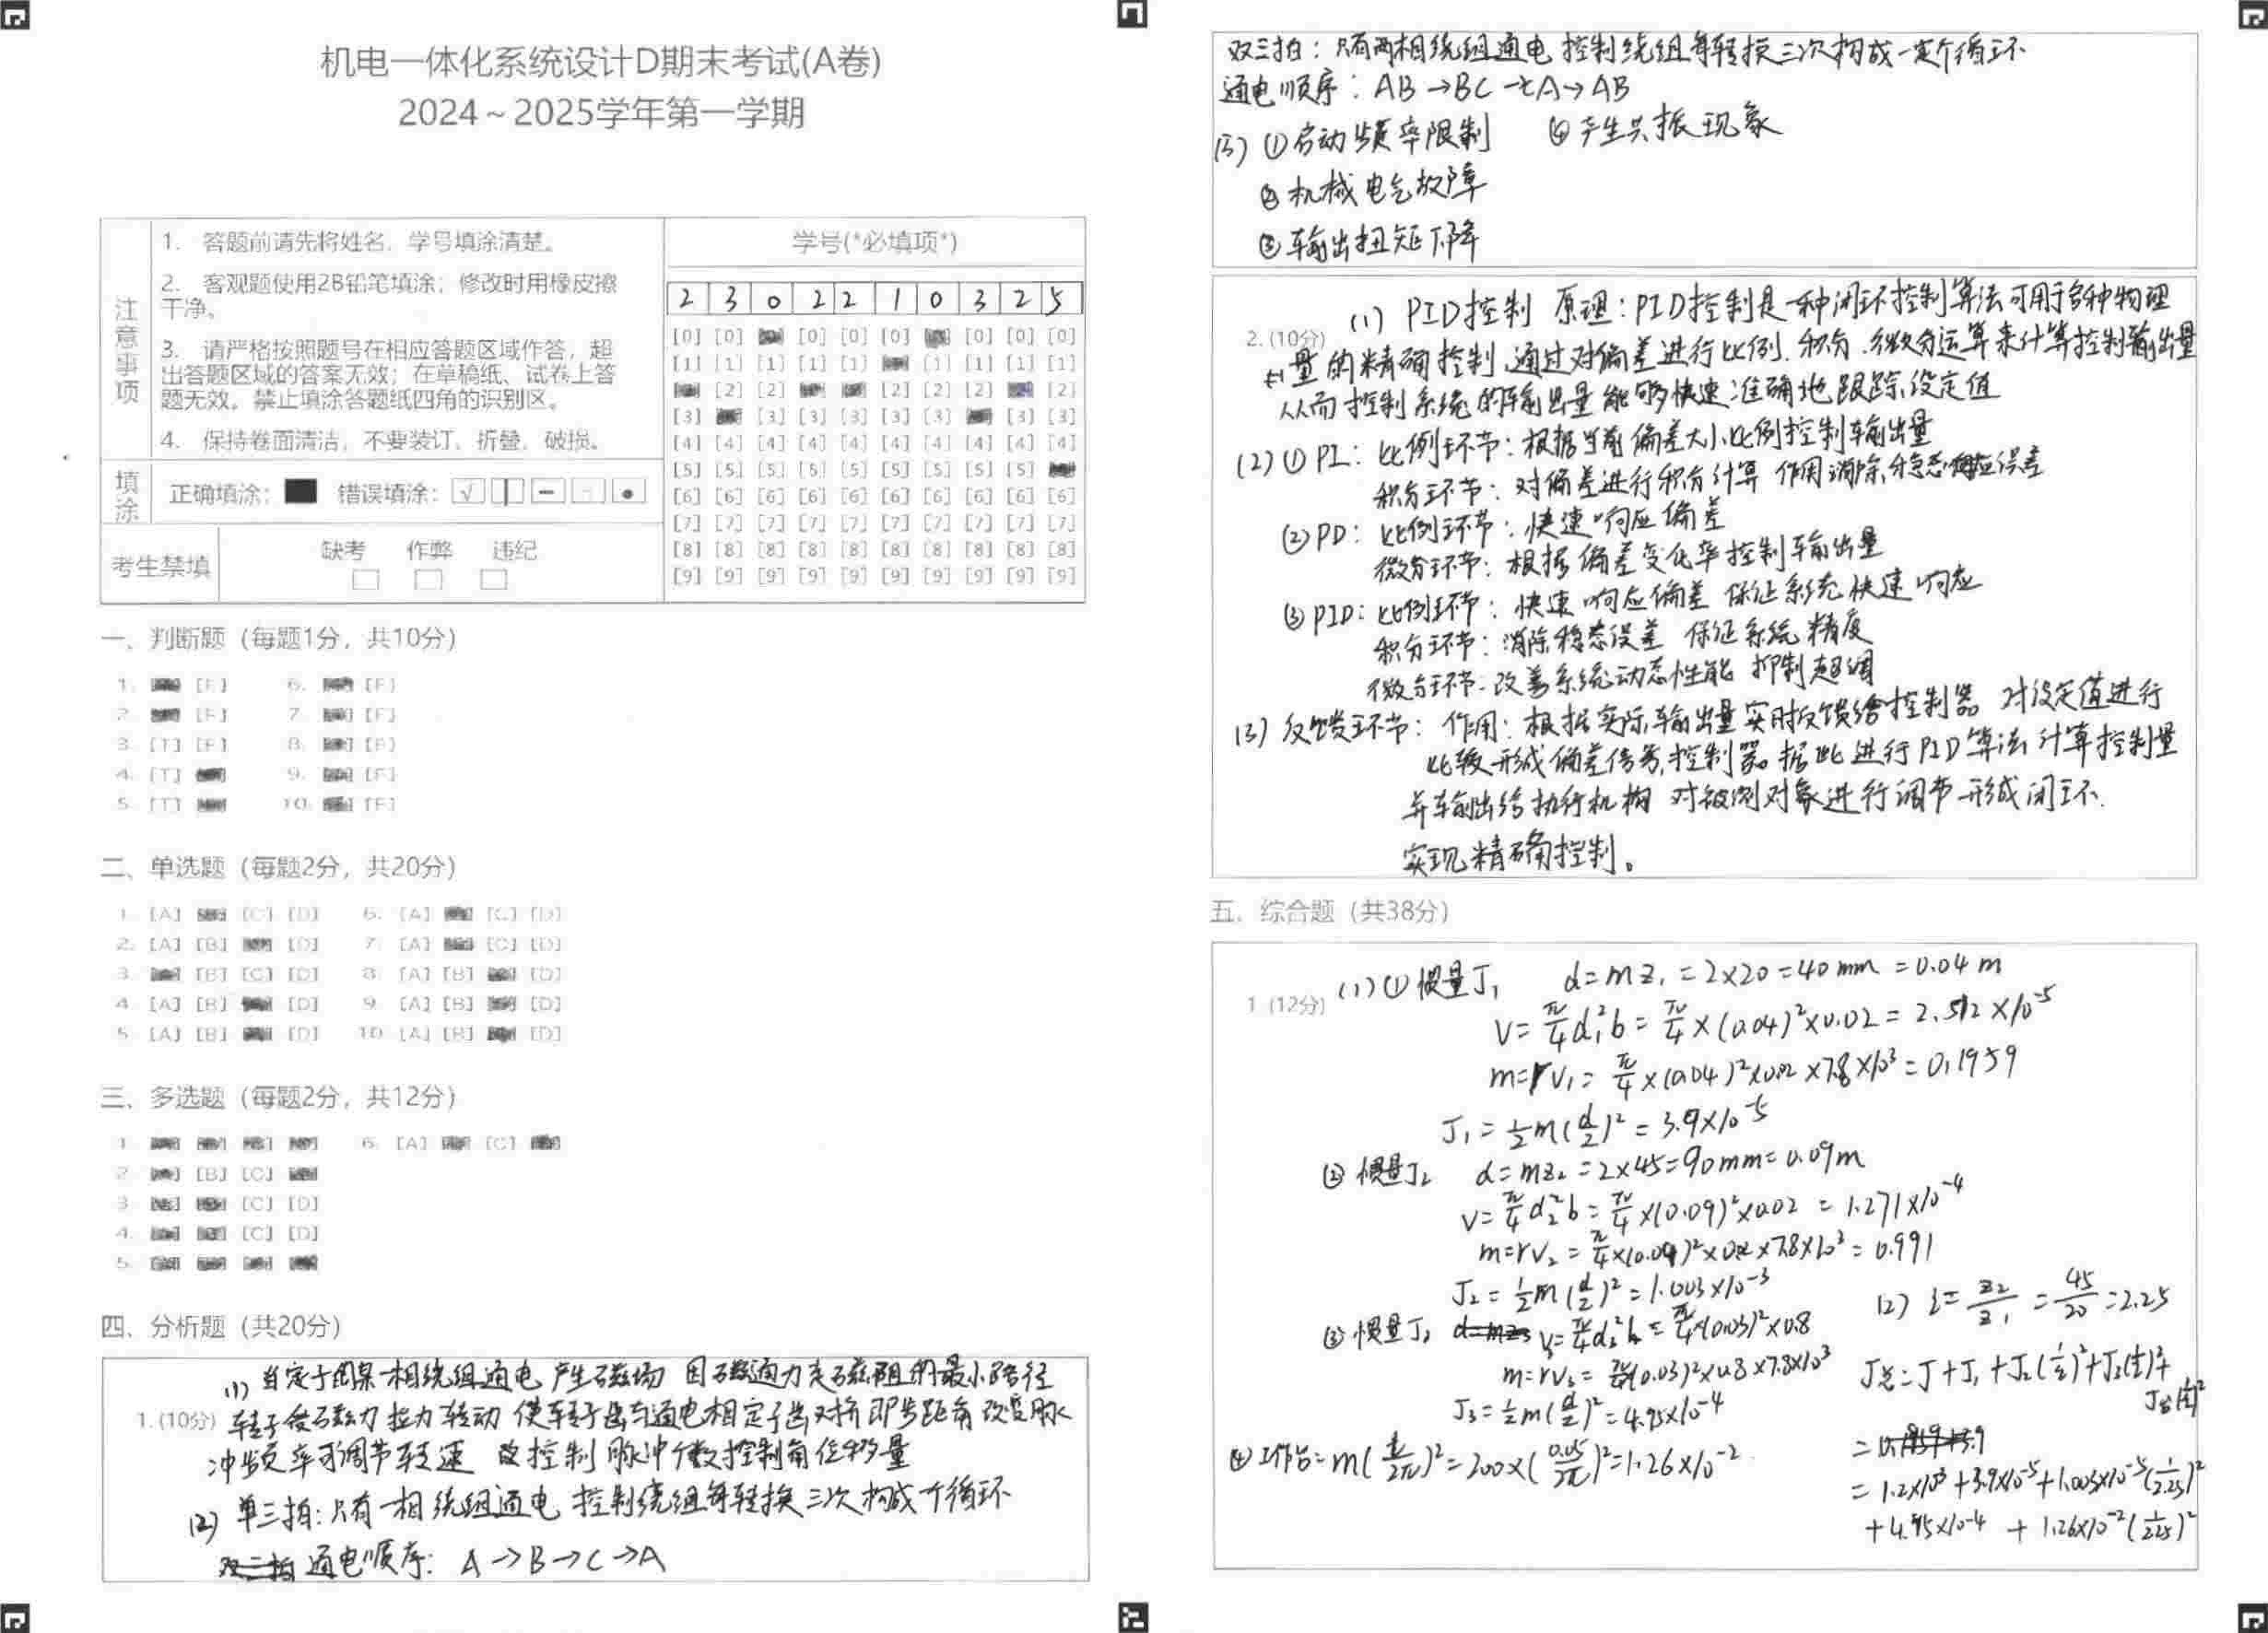 机电一体化系统设计D期末考试(A卷)
2024～2025学年第一学期
注意事项
1. 答题前请先将姓名、学号填涂清楚。
2. 客观题使用2B铅笔填涂；修改时用橡皮擦
干净。
3. 请严格按照题号在相应答题区域作答，超
出答题区域的答案无效；在草稿纸、试卷上答
题无效。禁止填涂答题纸四角的识别区。
4. 保持卷面清洁，不要装订、折叠、破损。
填涂
正确填涂： 错误填涂：
考生禁填
缺考 作弊 违纪
学号(*必填项*)
2 3 0 2 2 1 0 3 2 5
[0] [0] [0] [0] [0] [0] [0] [0]
[1] [1] [1] [1] [1] [1] [1] [1] [1]
[2] [2] [2] [2] [2] [2]
[3] [3] [3] [3] [3] [3] [3] [3]
[4] [4] [4] [4] [4] [4] [4] [4] [4] [4]
[5] [5] [5] [5] [5] [5] [5] [5] [5]
[6] [6] [6] [6] [6] [6] [6] [6] [6] [6]
[7] [7] [7] [7] [7] [7] [7] [7] [7] [7]
[8] [8] [8] [8] [8] [8] [8] [8] [8] [8]
[9] [9] [9] [9] [9] [9] [9] [9] [9] [9]
一、判断题（每题1分，共10分）
1. [F] 6. [F]
2. [F] 7. [F]
3. [T] [F] 8. [F]
4. [T] 9. [F]
5. [T] 10. [F]
二、单选题（每题2分，共20分）
1. [A] [C] [D] 6. [A] [C] [D]
2. [A] [B] [D] 7. [A] [C] [D]
3. [B] [C] [D] 8. [A] [B] [D]
4. [A] [B] [D] 9. [A] [B] [D]
5. [A] [B] [D] 10. [A] [B] [D]
三、多选题（每题2分，共12分）
1. 6. [A] [C]
2. [B] [C]
3. [C] [D]
4. [C] [D]
5.
四、分析题（共20分）
(1) 当定子的某一相绕组通电 产生磁场 因磁通力走磁阻的最小路径
1.(10分) 转子受磁力拉力转动 使转子齿与通电相定子齿对齐 即步距角 改变脉
冲频率可调节转速 改控制脉冲个数控制角位移量
(2) 单三拍：只有一相绕组通电 控制绕组每转换三次构成一个循环
通电顺序： A→B→C→A
双三拍：只有两相绕组通电 控制绕组每转换三次构成一个循环
通电顺序：AB→BC→CA→AB
(3) ①启动频率限制 ④产生共振现象
②机械电气故障
③输出扭矩下降
(1) PID控制 原理：PID控制是一种闭环控制算法可用于各种物理
2.(10分) 量的精确控制，通过对偏差进行比例、积分、微分运算来计算控制输出量
从而控制系统的输出量能够快速准确地跟踪设定值
(2)① PI：比例环节：根据当前偏差大小比例控制输出量
积分环节：对偏差进行积分计算 作用消除稳态误差
②PD：比例环节：快速响应偏差
微分环节：根据偏差变化率控制输出量
③PID：比例环节：快速响应偏差 保证系统快速响应
积分环节：消除稳态误差 保证系统精度
微分环节：改善系统动态性能 抑制超调
(3) 反馈环节：作用：根据实际输出量实时反馈给控制器 对设定值进行
比较形成偏差信号，控制器据此进行PID算法计算控制量
并输出给执行机构 对被测对象进行调节 形成闭环.
实现精确控制。
五、综合题（共38分）
1 (12分) (1)①惯量J₁ d=mz₁=2×20=40mm=0.04m
V=π/4 d₁²b=π/4×(0.04)²×0.02=2.512×10⁻⁵
m=rV₁=π/4×(0.04)²×0.02×7.8×10³=0.1959
J₁=1/2m(d/2)²=3.9×10⁻⁵
②惯量J₂ d=mz₂=2×45=90mm=0.09m
V=π/4 d₂²b=π/4×(0.09)²×0.02=1.271×10⁻⁴
m=rV₂=π/4×(0.09)²×0.02×7.8×10³=0.991
J₂=1/2m(d/2)²=1.003×10⁻³
③惯量J₃ V₃=π/4d₃²h=π/4×(0.03)²×0.8
m=rV₃=π/4(0.03)²×0.8×7.8×10³
J₃=1/2m(d/2)²=4.95×10⁻⁴
④工作台=m(L/2π)²=200×(0.05/2π)²=1.26×10⁻²
(2) i=z₂/z₁=45/20=2.25
J总=J+J₁+J₂(1/i)²+J₃(1/i)²+
J台(1/i)²
=1.2×10³+3.9×10⁻⁵+1.003×10⁻³(1/2.25)²
+4.95×10⁻⁴ +1.26×10⁻²(1/2.25)²